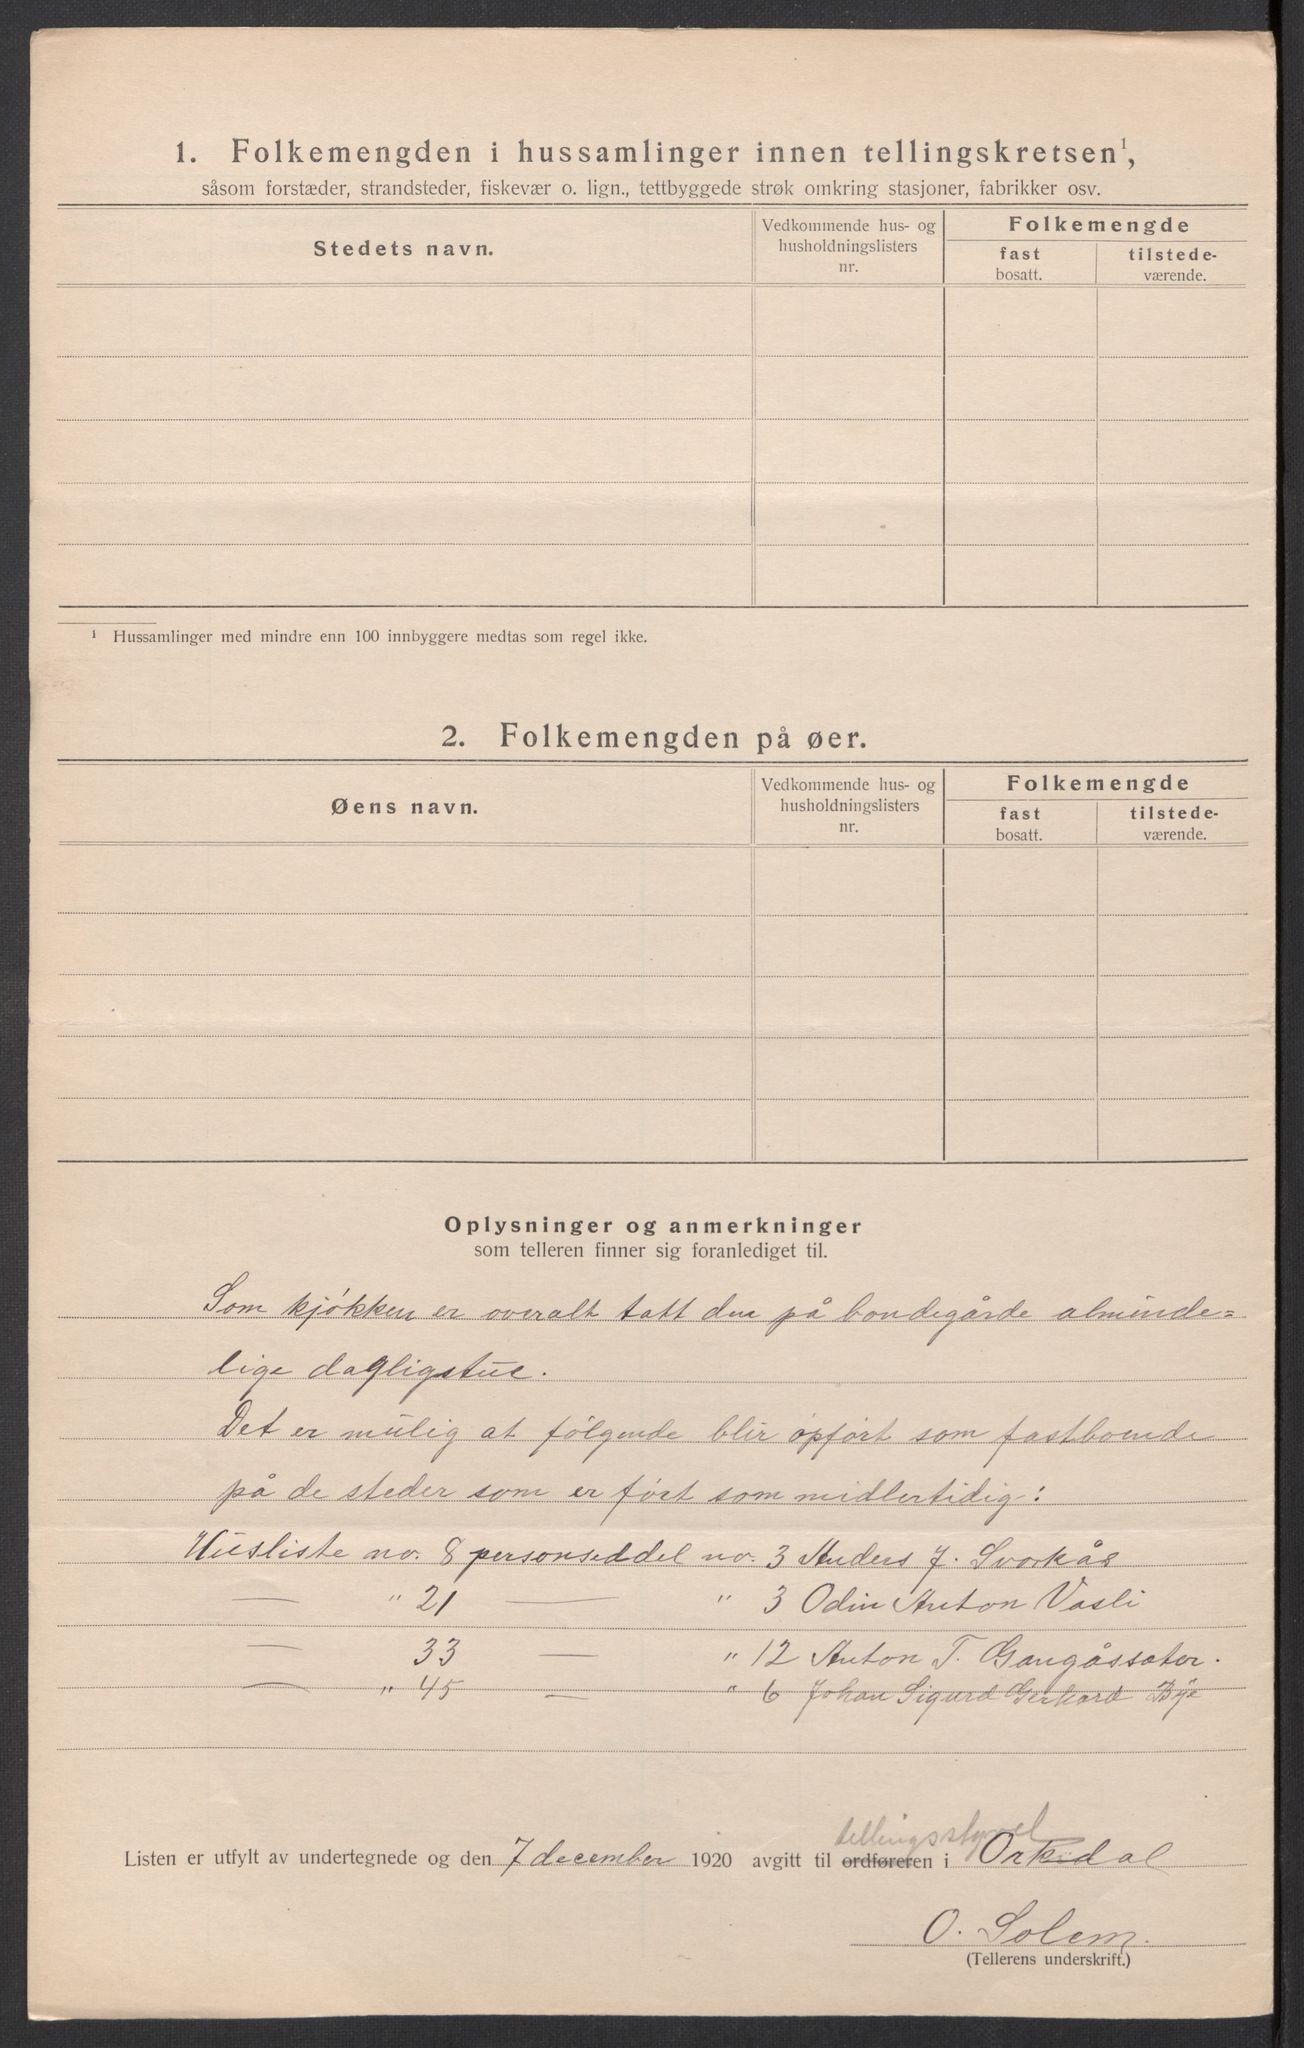 1. Folkemengden i hussamlinger innen tellingskretsen¹,
såsom forstæder, strandsteder, fiskevær o. lign., tettbyggede strøk omkring stasjoner, fabrikker osv.
Stedets navn.
Vedkommende hus- og
husholdningslisters
nr.
Folkemengde
fast
bosatt.
tilstede-
værende.
¹ Hussamlinger med mindre enn 100 innbyggere medtas som regel ikke.
2. Folkemengden på øer.
Øens navn.
Vedkommende hus- og
husholdningslisters
nr.
Folkemengde
fast
bosatt.
tilstede-
værende.
Oplysninger og anmerkninger
som telleren finner sig foranlediget til.
Som kjøkken er overalt tatt den på bondegårde alminde=
lige dagligstue.
Det er mulig at følgende blir opført som fastboende
på de steder som er ført som midlertidig:
Husliste no. 8 personseddel no. 3 Anders J. Svorkås
— " 21 — " 3 Odin Anton Vasli
— 33 — " 12 Anton T. Gangåssæter.
— " 45 — " 6 Johan Sigurd Gerhard Bye
tellingsstyret
Listen er utfylt av undertegnede og den 7 december 1920 avgitt til ordføreren i Orkdal
O. Solem.
(Tellerens underskrift.)